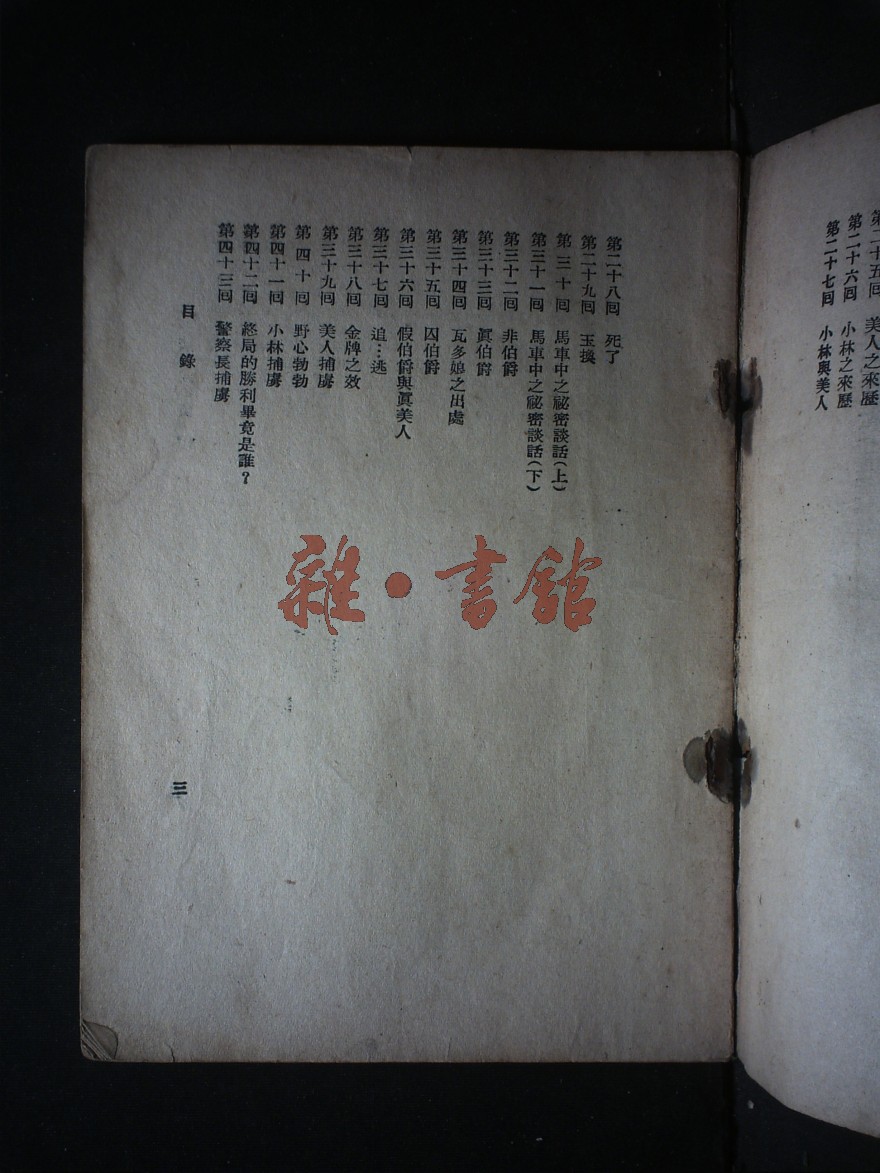 第二十五回　美人之來歷
第二十六回　小林之來歷
第二十七回　小林與美人
第二十八回　死了
第二十九回　玉換
第三十回　馬車中之祕密談話(上)
第三十一回　馬車中之祕密談話(下)
第三十二回　非伯爵
第三十三回　眞伯爵
第三十四回　瓦多娘之出處
第三十五回　囚伯爵
第三十六回　假伯爵與眞美人
第三十七回　追…逃
第三十八回　金牌之效
第三十九回　美人捕虜
第四十回　野心勃勃
第四十一回　小林捕虜
第四十二回　終局的勝利畢竟是誰？
第四十三回　警察長捕虜
目錄
三
雜・書館